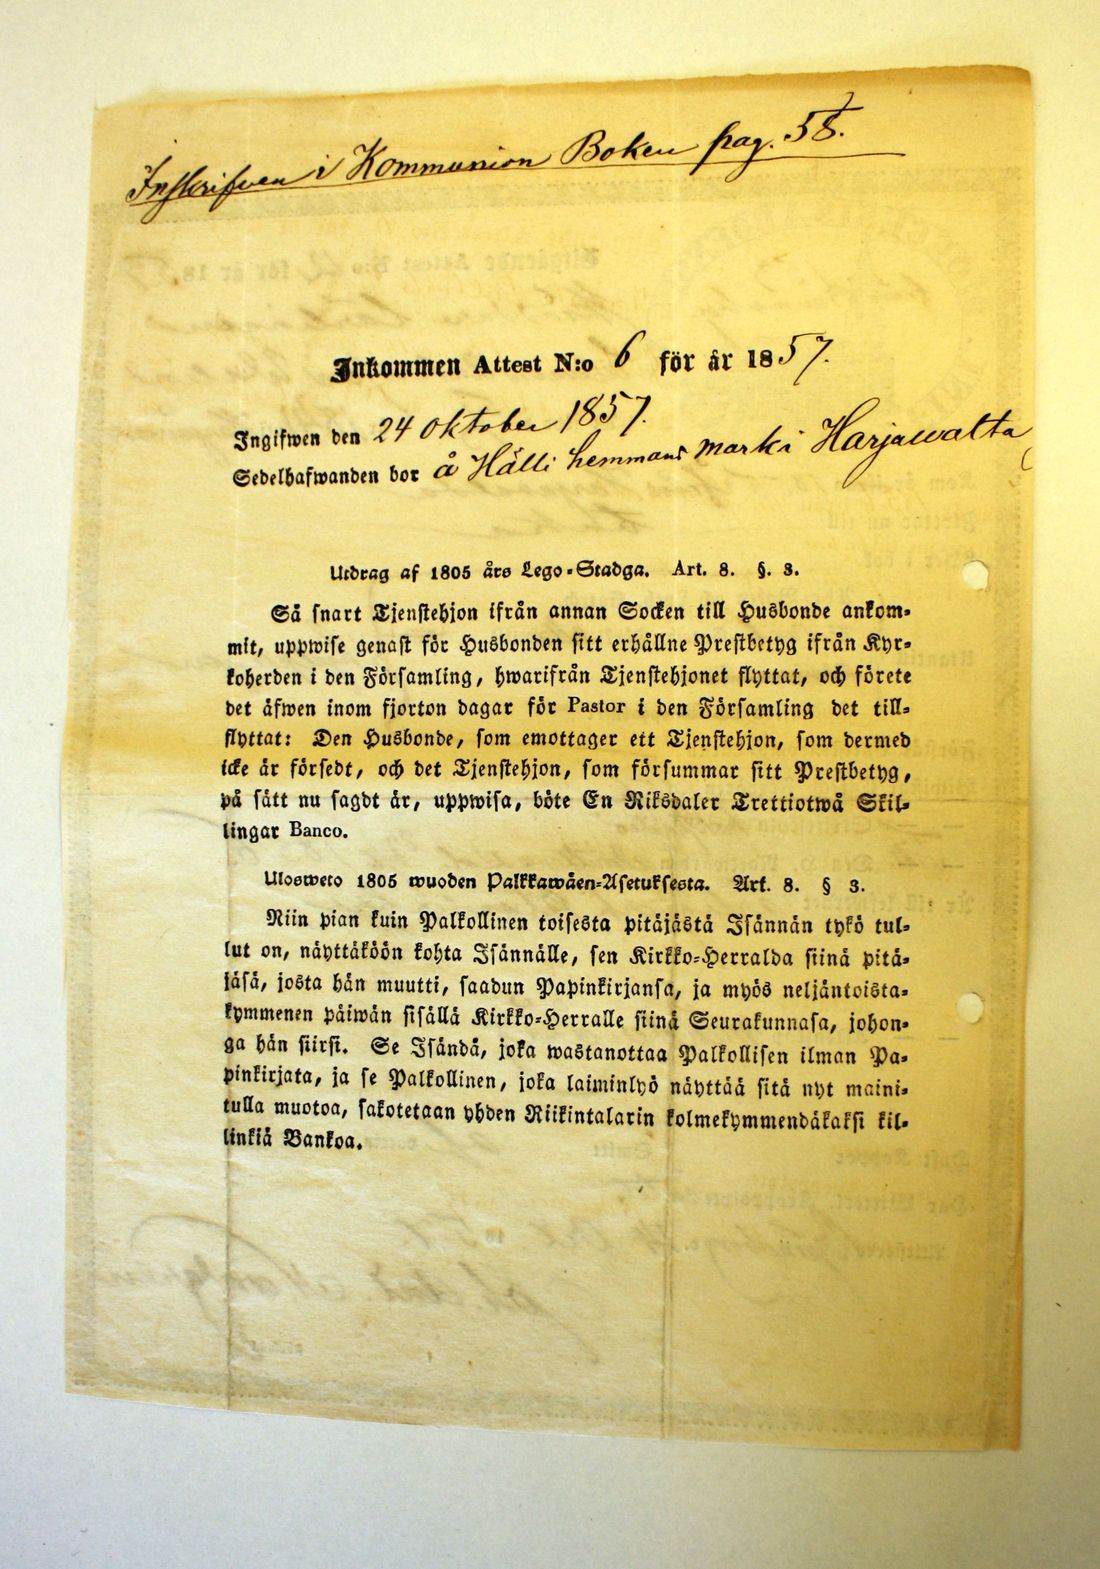 Inskrifven i Kommunion Boken pag. 58.
Inkommen Attest N:o 6 för år 1857.
Ingifwen den 24 Oktober 1857.
Sedelhafwanden bor å Hälli hemmans mark i Harjawalta
Utdrag af 1805 års Lego-Stadga. Art. 8. §. 3.
Så snart Tjenstehjon ifrån annan Socken till Husbonde ankom-
mit, uppwise genast för Husbonden sitt erhållne Prestbetyg ifrån Kyr-
koherden i den Församling, hwarifrån Tjenstehjonet flyttat, och förete
det äfwen inom fjorton dagar för Pastor i den Församling det till-
flyttat: Den Husbonde, som emottager ett Tjenstehjon, som dermed
icke är försedt, och det Tjenstehjon, som försummar sitt Prestbetyg,
på sätt nu sagdt är, uppwisa, böte En Riksdaler Trettiotwå Skil-
lingar Banco.
Ulosweto 1805 wuoden Palkkawäen-Asetuksesta. Art. 8. § 3.
Niin pian kuin Palkollinen toisesta pitäjästä Isännän tykö tul-
lut on, näyttäköön kohta Isännälle, sen Kirkko-Herralda siinä pitä-
jäsä, josta hän muutti, saadun Papinkirjansa, ja myös neljäntoista-
kymmenen päiwän sisällä Kirkko-Herralle siinä Seurakunnasa, johon-
ga hän siirsi. Se Isändä, joka wastanottaa Palkollisen ilman Pa-
pinkirjata, ja se Palkollinen, joka laiminlyö näyttää sitä nyt maini-
tulla muotoa, sakotetaan yhden Riikintalarin kolmekymmendäkaksi kil-
linkiä Bankoa.